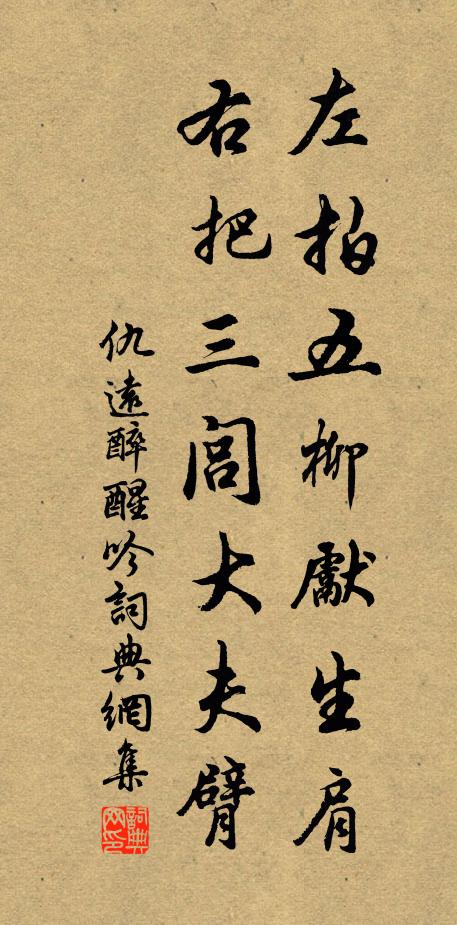 左拍五柳獻生肩
右把三閭大夫臂
仇遠醉醒吟詞典網集
詞典网印